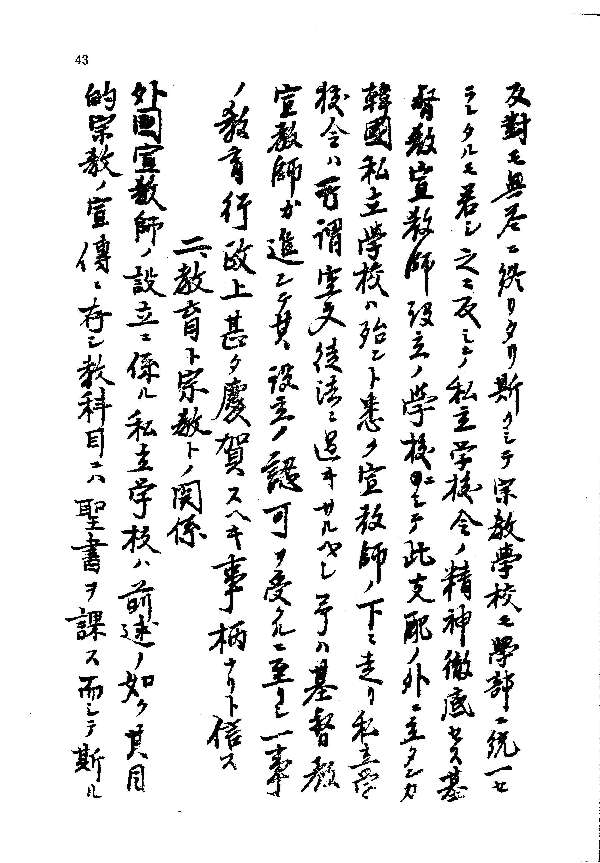 43
反對モ無差ニ終リタリ斯クシテ宗教學校モ學部ニ統一セ
ラレタルモ若シ之ニ反シテ私立学校令ノ精神徹底セス基
督教宣教師設立ノ学校ニシテ此支配ノ外ニ立タンカ
韓國私立学校ハ殆ント悉ク宣教師ノ下ニ走リ私立学
校令ハ所謂空文徒法ニ過キサルヘシ予ハ基督教
宣教師カ進ンテ其ノ設立ノ認可ヲ受クルニ至リシ一事
ノ教育行政上甚タ慶賀スヘキ事柄ナリト信ス
二、教育ト宗教トノ関係
外國宣教師ノ設立ニ係ル私立学校ハ前述ノ如ク其目
的宗教ノ宣傳ニ存シ教科目ニハ聖書ヲ課ス而シテ斯ル